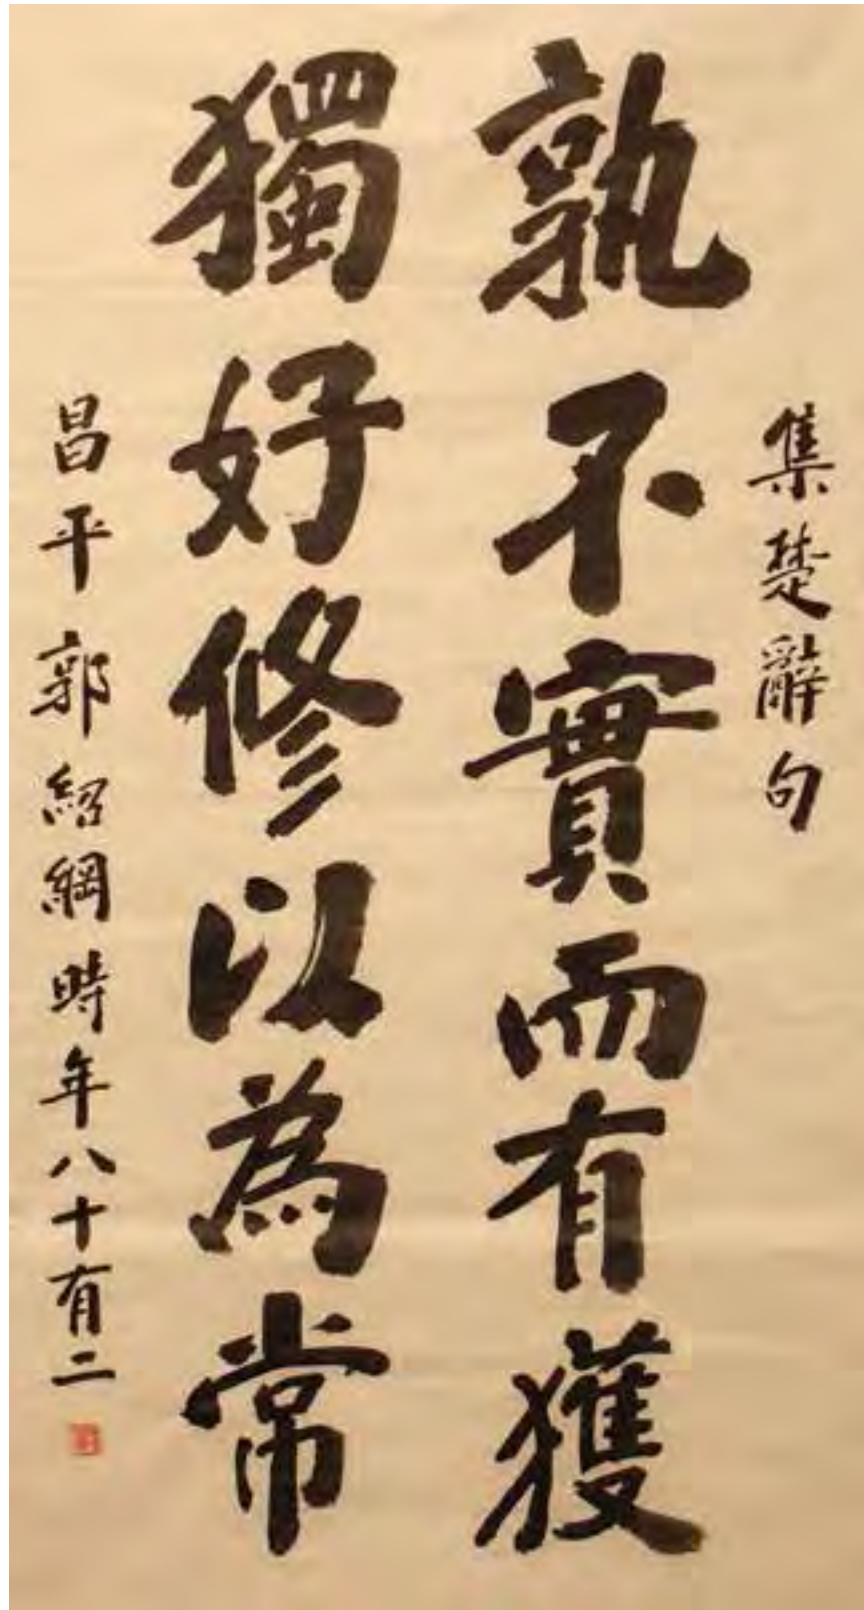 集楚辭句
孰不實而有獲
獨好修以為常
昌平郭紹綱時年八十有二